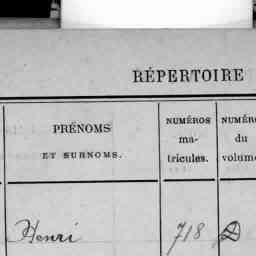 RÉPERTOIRE
PRÉNOMS
ET SURNOMS.
NUMÉROS
ma-
tricules.
NUMÉR
du
volum
Henri 718 D